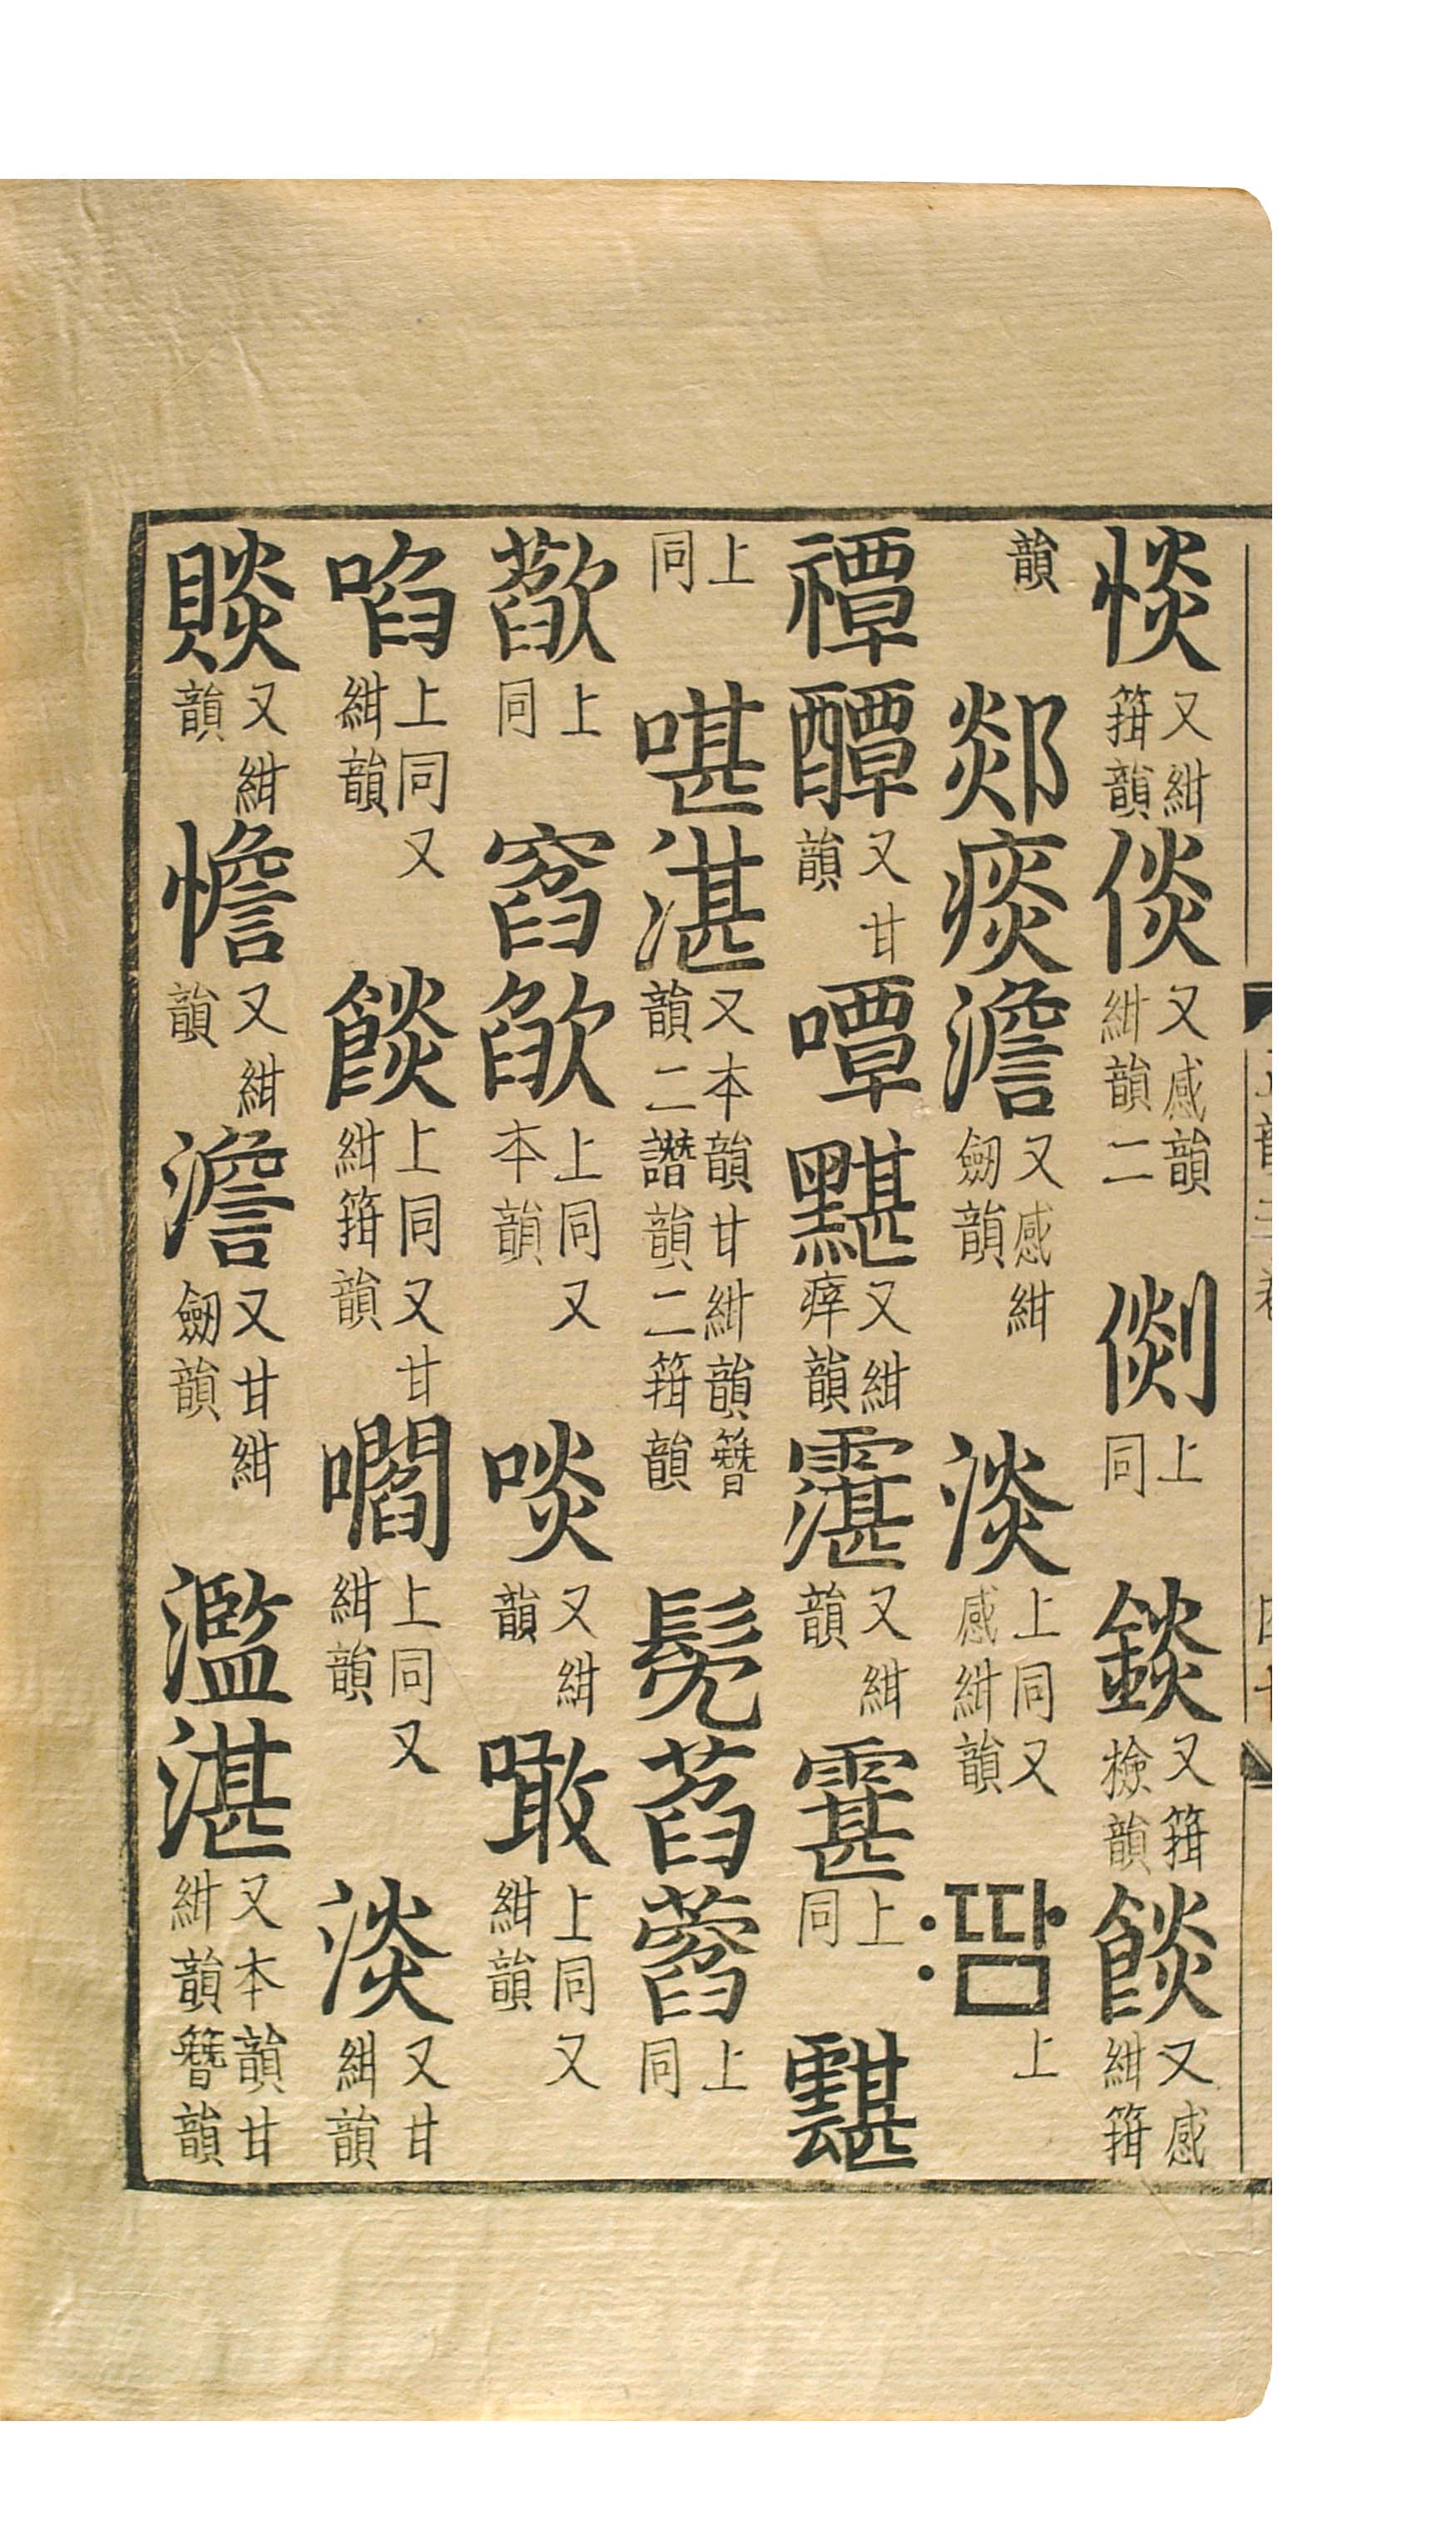 惔又紺箝韻倓又感韻紺韻二㒨上同錟又箝檢韻餤又感紺箝
韻郯痰澹又感紺劒韻淡上同又感紺韻〯땀上
禫醰又甘韻嘾黮又紺㽎韻霮又紺韻䨢上同
同上啿湛又本韻甘紺韻簪韻二譖韻二箝韻髧萏上同
上同窞欿上同又本韻啖又紺韻噉上同又紺韻
啗上同又紺韻餤上同又甘紺箝韻嚪上同又紺韻淡又甘紺韻
賧又紺韻憺又紺韻澹又甘紺劒韻濫湛又本韻甘紺韻簪韻